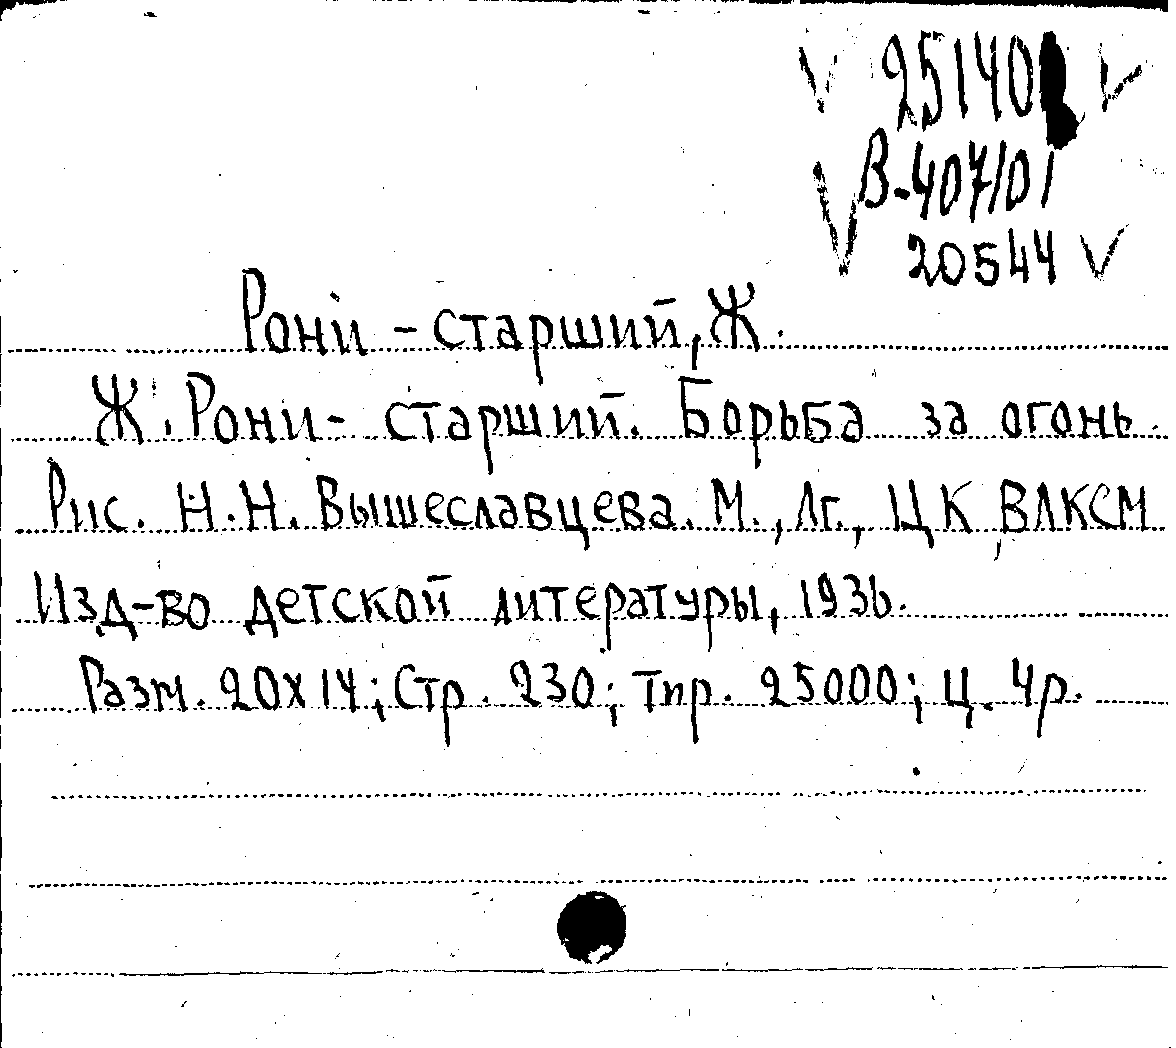 25140
В-407/01
20544
Рони - старший, Ж.
Ж. Рони - старший. Борьба за огонь.
Рис. Н.Н. Вышеславцева. М., Лг., ЦК ВЛКСМ
Изд-во детской литературы, 1936.
Разм. 20х14; Стр. 230; Тир. 25000; Ц. 4р.